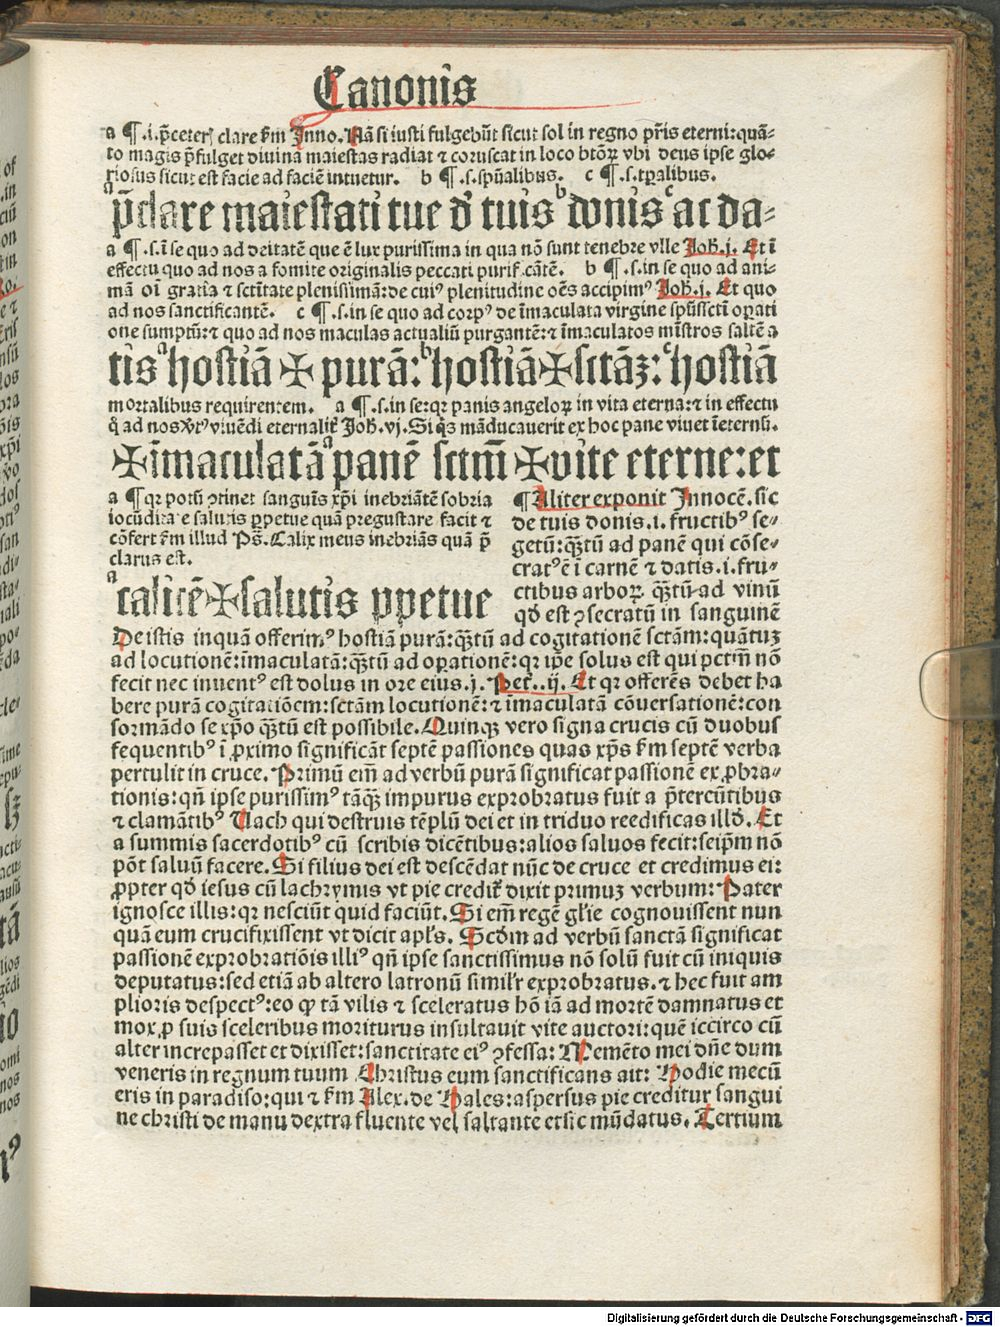 Canonis
a ¶.i. p̄ceterꝭ clare ẜm Inno. Nā si iusti fulgebūt sicut sol in regno pr̄is eterni: quā⸗
to magis p̄fulget diuina maiestas radiat ⁊ coruscat in loco btōꝝ vbi deus ipse glo⸗
riosus sicut est facie ad faciē intuetur. b ¶.s. spūalibus. c ¶.s. tp̄alibus.
p̄clare maiestati tue d̄ tuis donis ac da⸗
a ¶.s. ī se quo ad deitatē que ē lux purissima in qua nō sunt tenebre vlle Joh̄.j. Et ī
effectu quo ad nos a fomite originalis peccati purificātē. b ¶.s. in se quo ad ani⸗
mā oī gratia ⁊ sctītate plenissimā: de cuiꝰ plenitudine oēs accipimꝰ Joh̄.j. Et quo
ad nos sanctificantē. c ¶.s. in se quo ad corpꝰ de īmaculata virgine spūssctī opati
one sumptū: ⁊ quo ad nos maculas actualiū purgantē: ⁊ īmaculatos mīstros saltē a
tis hostiā ✠ purā: hostiā ✠ sctāꝫ: hostiā
mortalibus requirentem. a ¶.s. in se: qꝛ panis angeloꝝ in vita eterna: ⁊ in effectu
q̄ ad nos vtꝰ viuēdi eternalit̄ Joh̄.vj. Si q̄s māducauerit ex hoc pane viuet īeternū.
✠ īmaculatā panē sctm̄ ✠ vite eterne: et
a ¶ qꝛ potū ꝯtinet sanguīs xp̄i inebriātē sobria
iocūditate salutis ꝑpetue quā pregustare facit ⁊
cōfert ẜm illud Ps̄. Calix meus inebriās quā p̄
clarus est.
calicē ✠ salutis ꝑpetue
¶ Aliter exponit Innocē. sic
de tuis donis .i. fructibꝰ se⸗
getū: qꝫtū ad panē qui cōse⸗
cratꝰ ē ī carnē ⁊ datis .i. fru⸗
ctibus arboꝝ qꝫtū ad vinū
qd̄ est ꝯsecratū in sanguinē
De istis inquā offerimꝰ hostiā purā: qꝫtū ad cogitationē sctām: quātuꝫ
ad locutionē: īmaculatā: qꝫtū ad oꝑationē: qꝛ ip̄e solus est qui pctm̄ nō
fecit nec inuentꝰ est dolus in ore eius .j. Pet̄..ij. Et qꝛ offerēs debet ha
bere purā cogitatiōem: sctām locutionē: ⁊ īmaculatā cōuersationē: con
formādo se xp̄o qꝫtū est possibile. Quinqꝫ vero signa crucis cū duobus
sequentibꝰ ī ꝓximo significāt septē passiones quas xp̄s ẜm septē verba
pertulit in cruce. Primū em̄ ad verbū purā significat passionē exꝓbra⸗
tionis: qn̄ ipse purissimꝰ tāqꝫ impurus exprobratus fuit a p̄tereūtibus
⁊ clamātibꝰ Uach qui destruis tēplū dei et in triduo reedificas illd̄. Et
a summis sacerdotibꝰ cū scribis dicētibus: alios saluos fecit: seip̄m nō
pōt saluū facere. Si filius dei est descēdat nūc de cruce et credimus ei:
ꝓpter qd̄ iesus cū lachrymis vt pie credit̄ dixit primuꝫ verbum: Pater
ignosce illis: qꝛ nesciūt quid faciūt. Si em̄ regē gl̄ie cognouissent nun
quā eum crucifixissent vt dicit apl̄s. Scd̄m ad verbū sanctā significat
passionē exprobratiōis illiꝰ qn̄ ipse sanctissimus nō solū fuit cū iniquis
deputatus: sed etiā ab altero latronū simil̄r exprobratus. ⁊ hec fuit am
plioris despectꝰ: eo ꝙ tā vilis ⁊ sceleratus hō iā ad mortē damnatus et
mox ꝓ suis sceleribus moriturus insultauit vite auctori: quē iccirco cū
alter increpasset et dixisset: sanctitate eiꝰ ꝯfessa: Memēto mei dn̄e dum
veneris in regnum tuum Christus eum sanctificans ait: Hodie mecū
eris in paradiso: qui ⁊ ẜm Alex. de Hales: aspersus pie creditur sangui
ne christi de manu dextra fluente vel saltante et sic mūdatus. Tertium
Digitalisierung gefördert durch die Deutsche Forschungsgemeinschaft - DFG